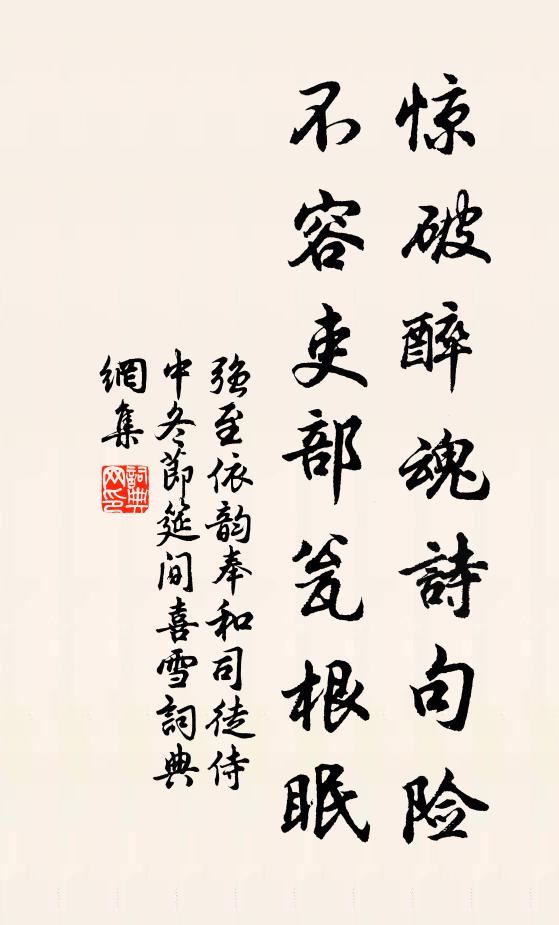 惊破醉魂詩句险
不容吏部瓮根眠
強至依韵奉和司徒侍
中冬節筵间喜雪詞典
網集
詞典
网印